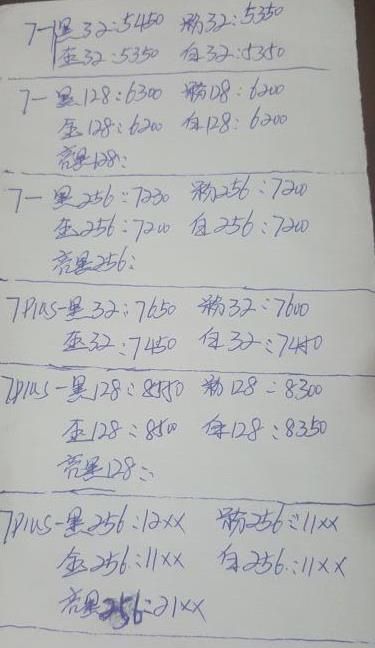 7一黑32:5450 粉32:5350
金32:5350 白32:5350
7一黑128:6300 粉128:6200
金128:6200 白128:6200
亮黑128:
7一黑256:7230 粉256:7200
金256:7200 白256:7200
亮黑256:
7Plus一黑32:7650 粉32:7600
金32:7450 白32:7450
7plus一黑128:8550 粉128:8300
金128:8500 白128:8350
亮黑128:
7Plus一黑256:12XX 粉256:11XX
金256:11XX 白256:11XX
亮黑256:21XX